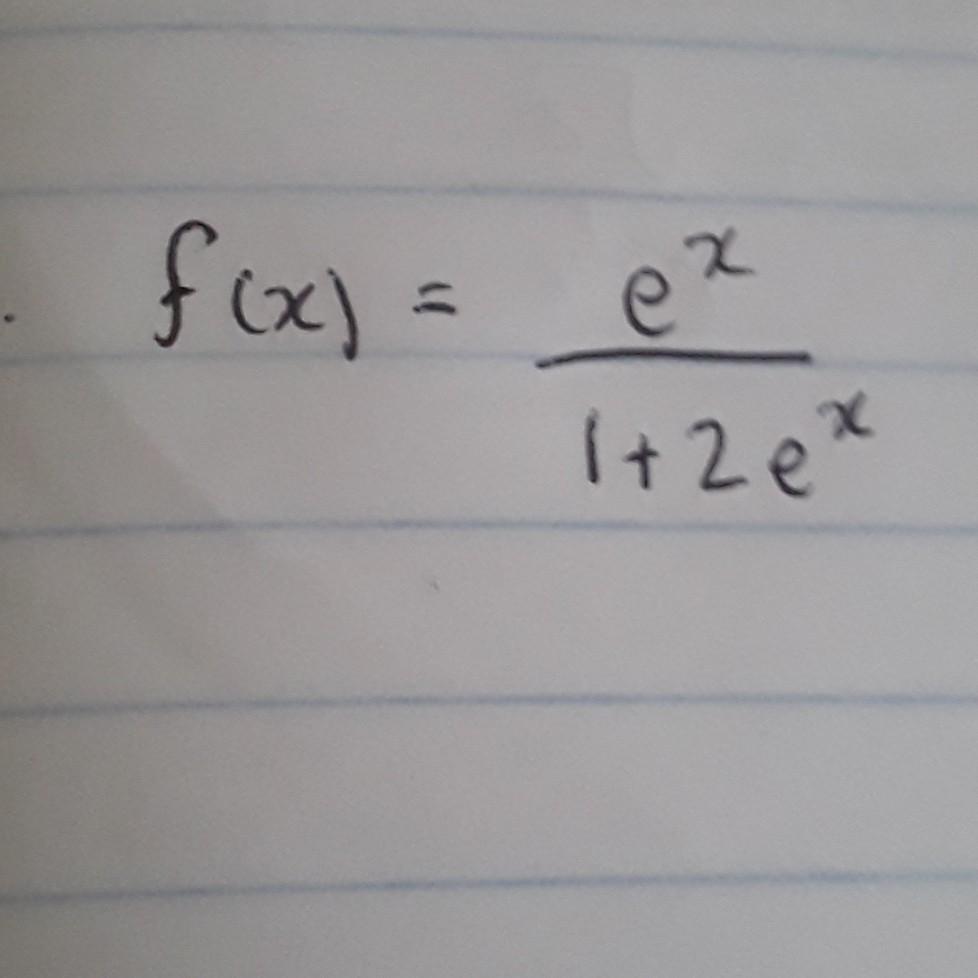 . f(x) = e^x / (1+2e^x)